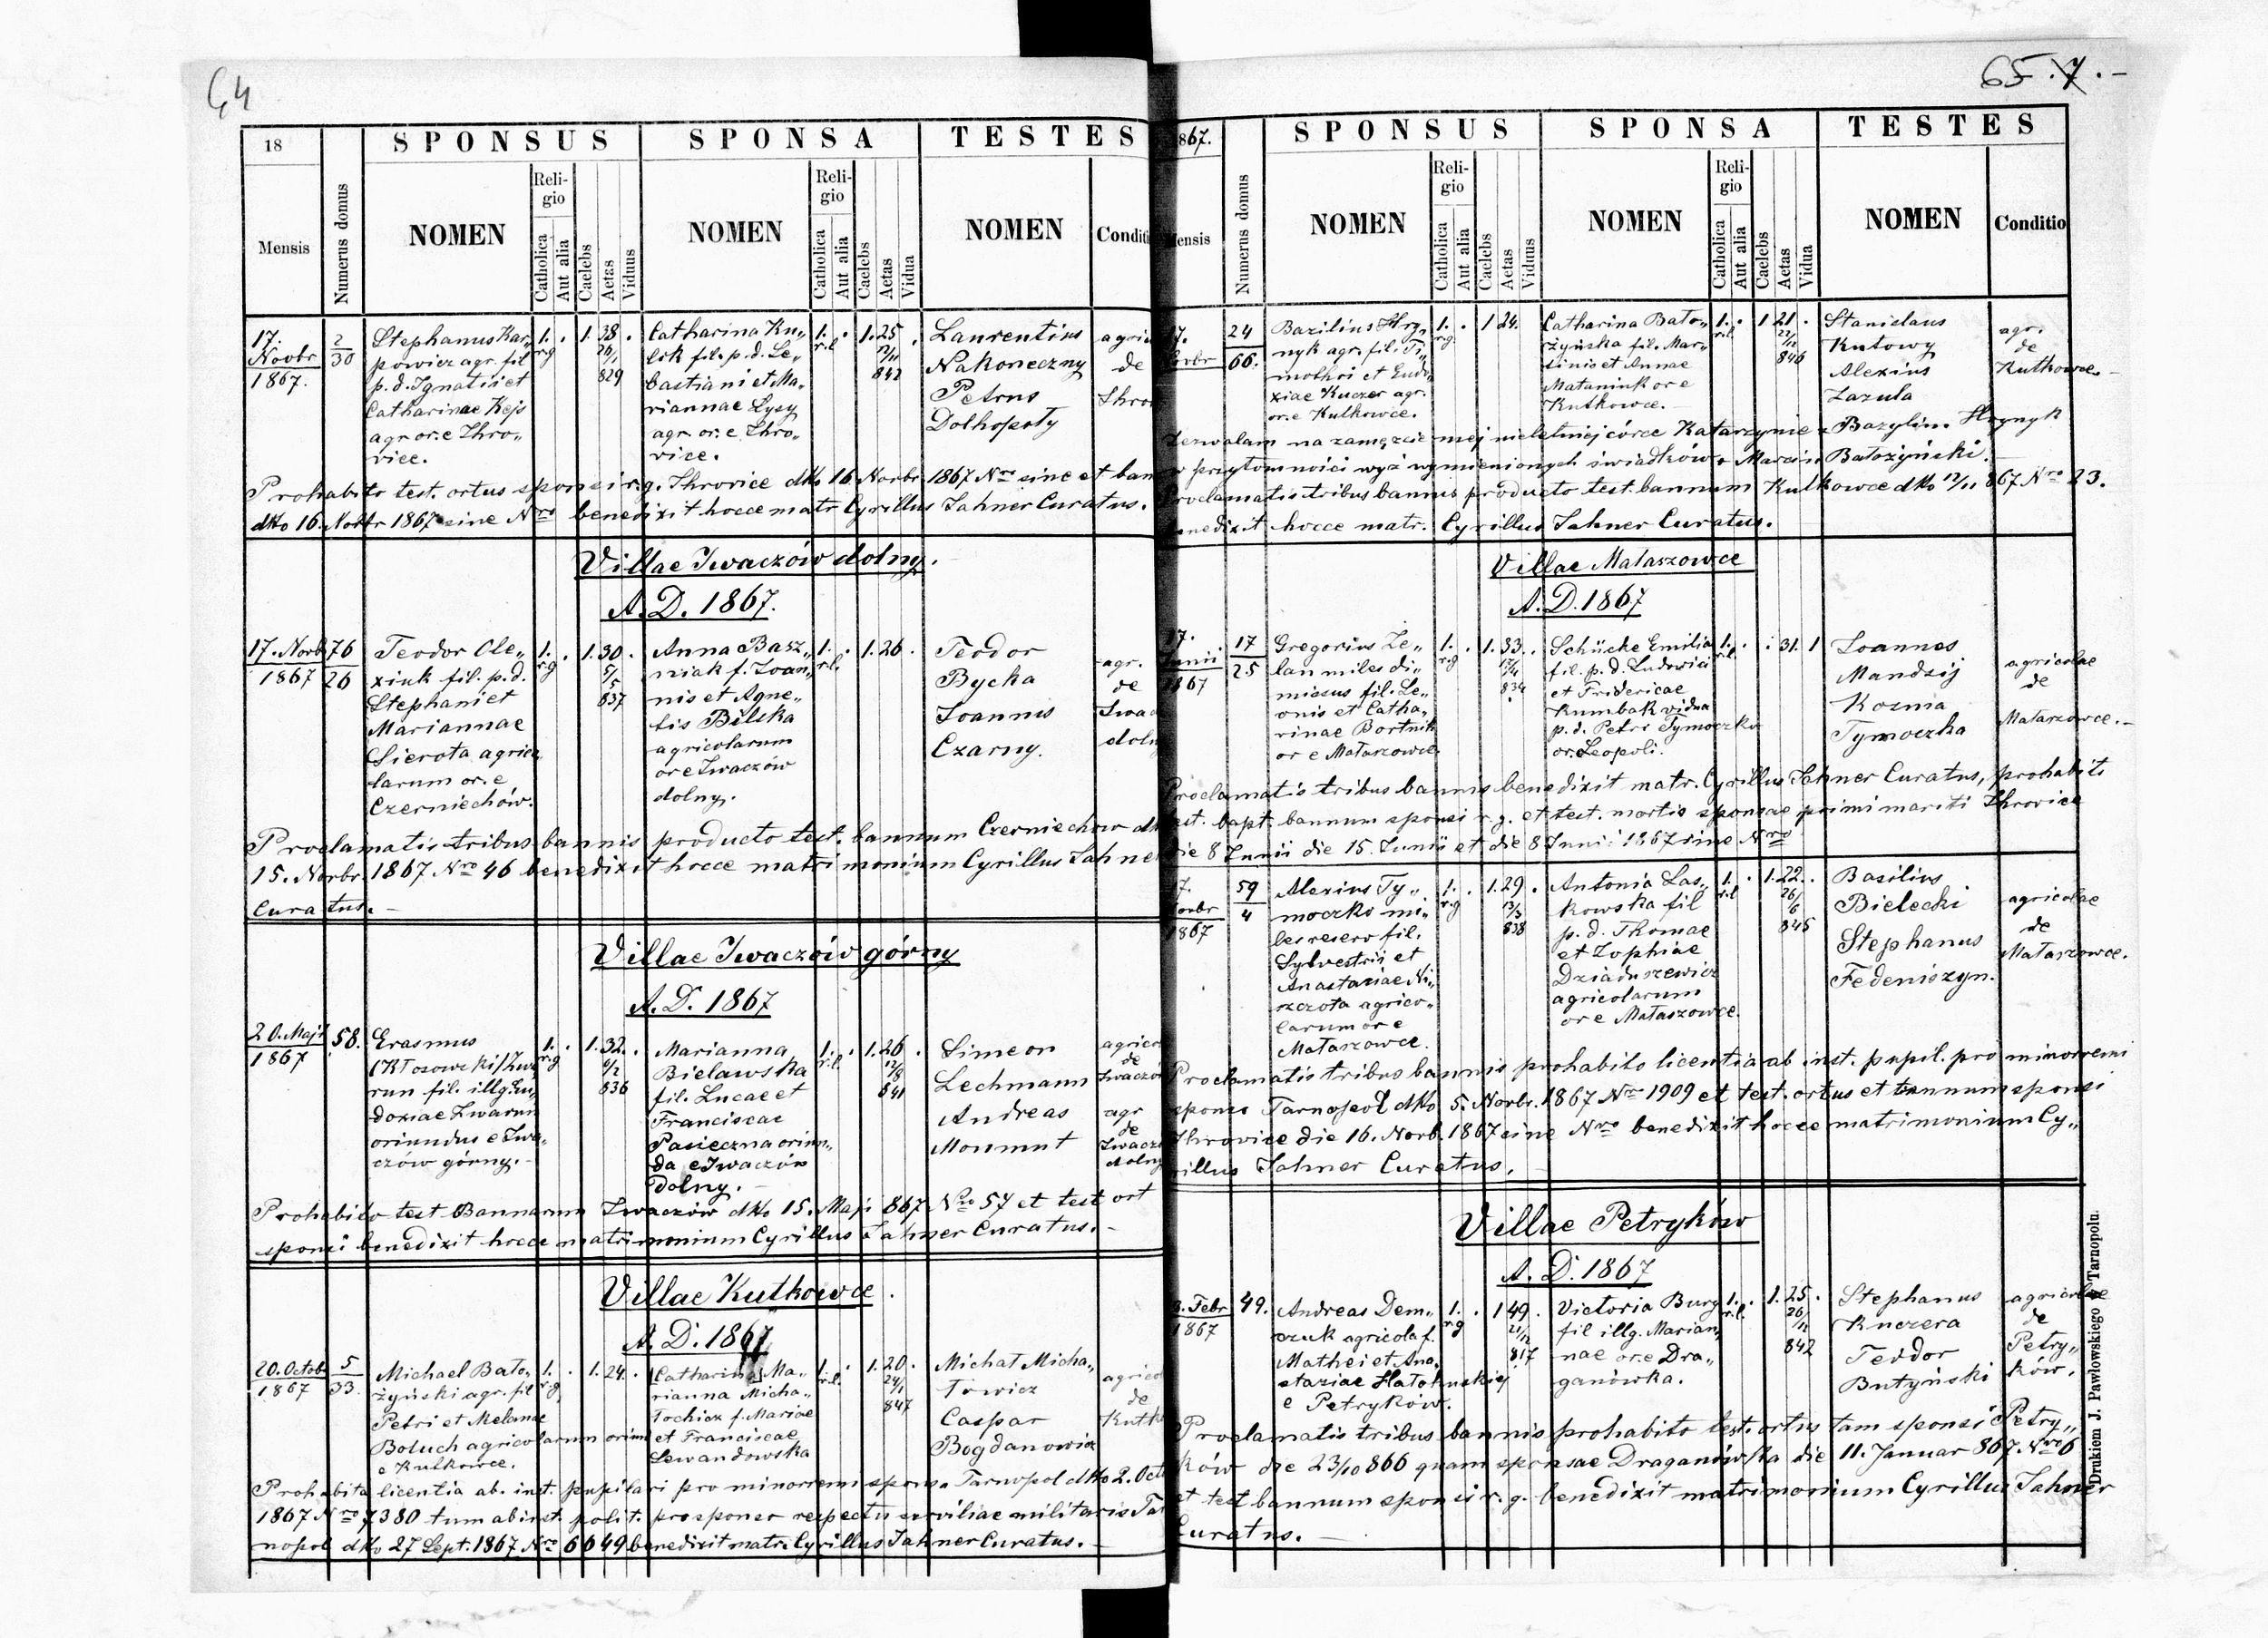 64
18
SPONSUS
SPONSA
TESTES
Mensis
Numerus domus
NOMEN
Religio
Catholica
Aut alia
Caelebs
Aetas
Viduus
NOMEN
Religio
Catholica
Aut alia
Caelebs
Aetas
Vidua
NOMEN
Conditi
17.
Novbr
1867.
2
30
Stephanus Kar„
powicz agr. fil
p. d. Ignatii et
Catharinae Kejs
agr. or. e Ihro„
vice.
1.
r.g
1. 38
26/1
829
Catharina Ku„
lik fil. p. d. Se„
bastiani et Ma„
riannae Lysy
agr. or. e Ihro„
vice.
1.
r.l.
1. 25
842
Laurentius
Nakoneczny
Petrus
Dolhopoty
agric
de
Ihro
Prohabito test. ortus sponsi r.g. Ihrovice dtto 16. Novbr 1867 Nro sine et ban
dtto 16. Novbr 1867 sine Nro benedixit hocce matr Cyrillus Jahner Curatus.
Villae Iwaczów dolny.
A. D. 1867.
17. Norb
1867
76
26
Teodor Ole„
xiuk fil. p. d.
Stephani et
Mariannae
Sierota agrico
larum or. e
Czerniechów.
1.
r.g
1. 30.
5/5
837
Anna Basz„
niak f. Ioan„
nis et Agne„
tis Bilska
agricolarum
or e Iwaczów
dolny.
1.
r.l.
1. 26.
Teodor
Bycha
Ioannis
Czarny.
agr.
de
Iwac
doln
Proclamatis tribus bannis producto test. bannum Czerniechow dt
15. Norbr. 1867 Nro 46 benedixit hocce matrimonium Cyrillus Jahne
Curatus.
Villae Iwaczów górny
A. D. 1867
20. Maji
1867
58.
Erasmus
(Kłosowski) Zwa
run fil. illg. Eu„
doxiae Zwarun
oriundus e Iwa„
czów górny.
1.
r.g
1. 32.
836
Marianna
Bielawska
fil. Lucae et
Franciscae
Pasieczna oriun„
da e Iwaczów
dolny.
1.
r.l.
1. 26
12/8
841
Simeon
Lechmann
Andreas
Monmut
agrico
de
Iwaczó
agr
de
Iwacz
dolny
Prohabito test Bannarum Iwaczów dtto 15. Maji 867 Nro 57 et test ort
sponsi benedixit hocce matrimonium Cyrillus Jahner Curatus.
Villae Kutkowce
A. D. 1867
20. Octob
1867
5
33.
Michael Bato„
żyński agr. fil
Petri et Melanae
Boluch agricolarum oriun
e Kutkowce.
1.
r.g
1. 24.
Catharina Ma„
rianna Micha„
łochicz f. Mariae
et Franciscae
Lewandowska
1.
r.l.
1. 20.
24/1
847
Michał Micha„
łowicz
Caspar
Bogdanowicz
agricol
de
Kutk
Prohabita licentia ab. inst. pupilari pro minorremi sponsa Tarnopol dtto 2. Octo
1867 Nro 7380 tum ab inst. polit. pro sponer respectu serviliae militaris Tar
nopol dtto 27 Sept. 1867 Nro 6649 benedixit matr. Cyrillus Jahner Curatus.
65.
867.
SPONSUS
SPONSA
TESTES
ensis
Numerus domus
NOMEN
Religio
Catholica
Aut alia
Caelebs
Aetas
Viduus
NOMEN
Religio
Catholica
Aut alia
Caelebs
Aetas
Vidua
NOMEN
Conditio
17.
ovbr
24
66.
Bazilius Hry„
nyk agr. fil. Ti„
mothei et Eudo
xiae Kuczer agr.
or. e Kutkowce.
1.
r.g
1 24.
Catharina Bato„
żyńska fil. Mar„
tinis et Annae
Mataniuk or e
Kutkowce.
1.
r.l.
1 21.
22/11
846
Stanislaus
Kutowy
Alexius
Zazula
agr.
de
Kutkowce.
Zezwalam na zamęzcie mej nieletniej córce Katarzynie z Bazylim Hrynyk
w przytomności wyż wymienionych świadków. Marcin Batożyński.
Proclamatis tribus bannis producto test. bannum Kutkowce dtto 12/11 867 Nro 23.
benedixit hocce matr. Cyrillus Jahner Curatus.
Villae Mataszowce
A. D. 1867
17.
Junii
1867
17
25
Gregorius Ze„
lan miles di„
missus fil. Le„
onis et Catha„
rinae Bortnik
or e Mataszowce.
1.
r.g
1. 33.
834
Schücke Emilia
fil. p. d. Ludovici
et Fridericae
Kumbak vidua
p. d. Petri Tymoczko
or. Leopoli.
1.
r.l.
31. 1
Ioannes
Mandzij
Kozma
Tymoczka
agricolae
de
Mataszowce.
Proclamatis tribus bannis benedixit matr. Cyrillus Jahner Curatus, prohabiti
est. bapt. bannum sponsi r. g. et test. mortis sponsae primi mariti Ihrovice
die 8 Junii die 15. Junii et die 8 Junii 1867 sine Nro
17.
ovbr
1867
59
4
Alexius Ty„
moczko mi„
les reserv fil.
Sylvestrii et
Anastasiae Ni„
szczota agrico„
larum or e
Mataszowce.
1.
r.g
1. 29.
13/3
838
Antonia Las„
kowska fil
p. d. Thomae
et Zophiae
Dziaduszewicz
agricolarum
or e Mataszowce.
1.
r.l
1. 22.
26/6
845
Basilius
Bielecki
Stephanus
Fedeniszyn.
agricolae
de
Mataszowce.
Proclamatis tribus bannis prohabito licentia ab inst. pupil. pro minorremi
sponso Tarnopol dtto 5. Norbr. 1867 Nro 1909 et test. ortus et bannum sponsi
Ihrovice die 16. Norb. 1867 sine Nro benedixit hocce matrimonium Cy„
rillus Jahner Curatus.
Villae Petryków
A. D. 1867
. Febr
1867
49.
Andreas Dem„
czuk agricola f.
Mathei et Ana„
staziae
e Petryków.
1.
r.g
1 49.
21/12
817
Victoria Burg
fil illg. Marian„
nae or. e Dra„
ganówka.
1.
r.l.
1. 25.
26/12
842
Stephanus
Kuczera
Teodor
Butyński
agricolae
de
Petry„
ków.
Proclamatis tribus bannis prohabito test. ortus tam sponsi Petry„
ków die 23/10 866 quam sponsae Draganówka die 11. Januar 867. Nro 6
et test bannum sponsi r. g. benedixit matrimonium Cyrillus Jahner
Curatus.
Drukiom J. Pawłowskiego w Tarnopolu.